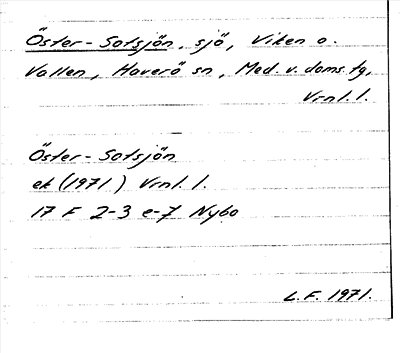 Öster-Sotsjön, sjö, Viken o.
Vallen, Haverö sn, Med. v. doms. tg,
Vrnl. l.
Öster-Sotsjön
ek (1971) Vrnl. l.
17 F 2-3 e-7 Nybo
L.F. 1971.